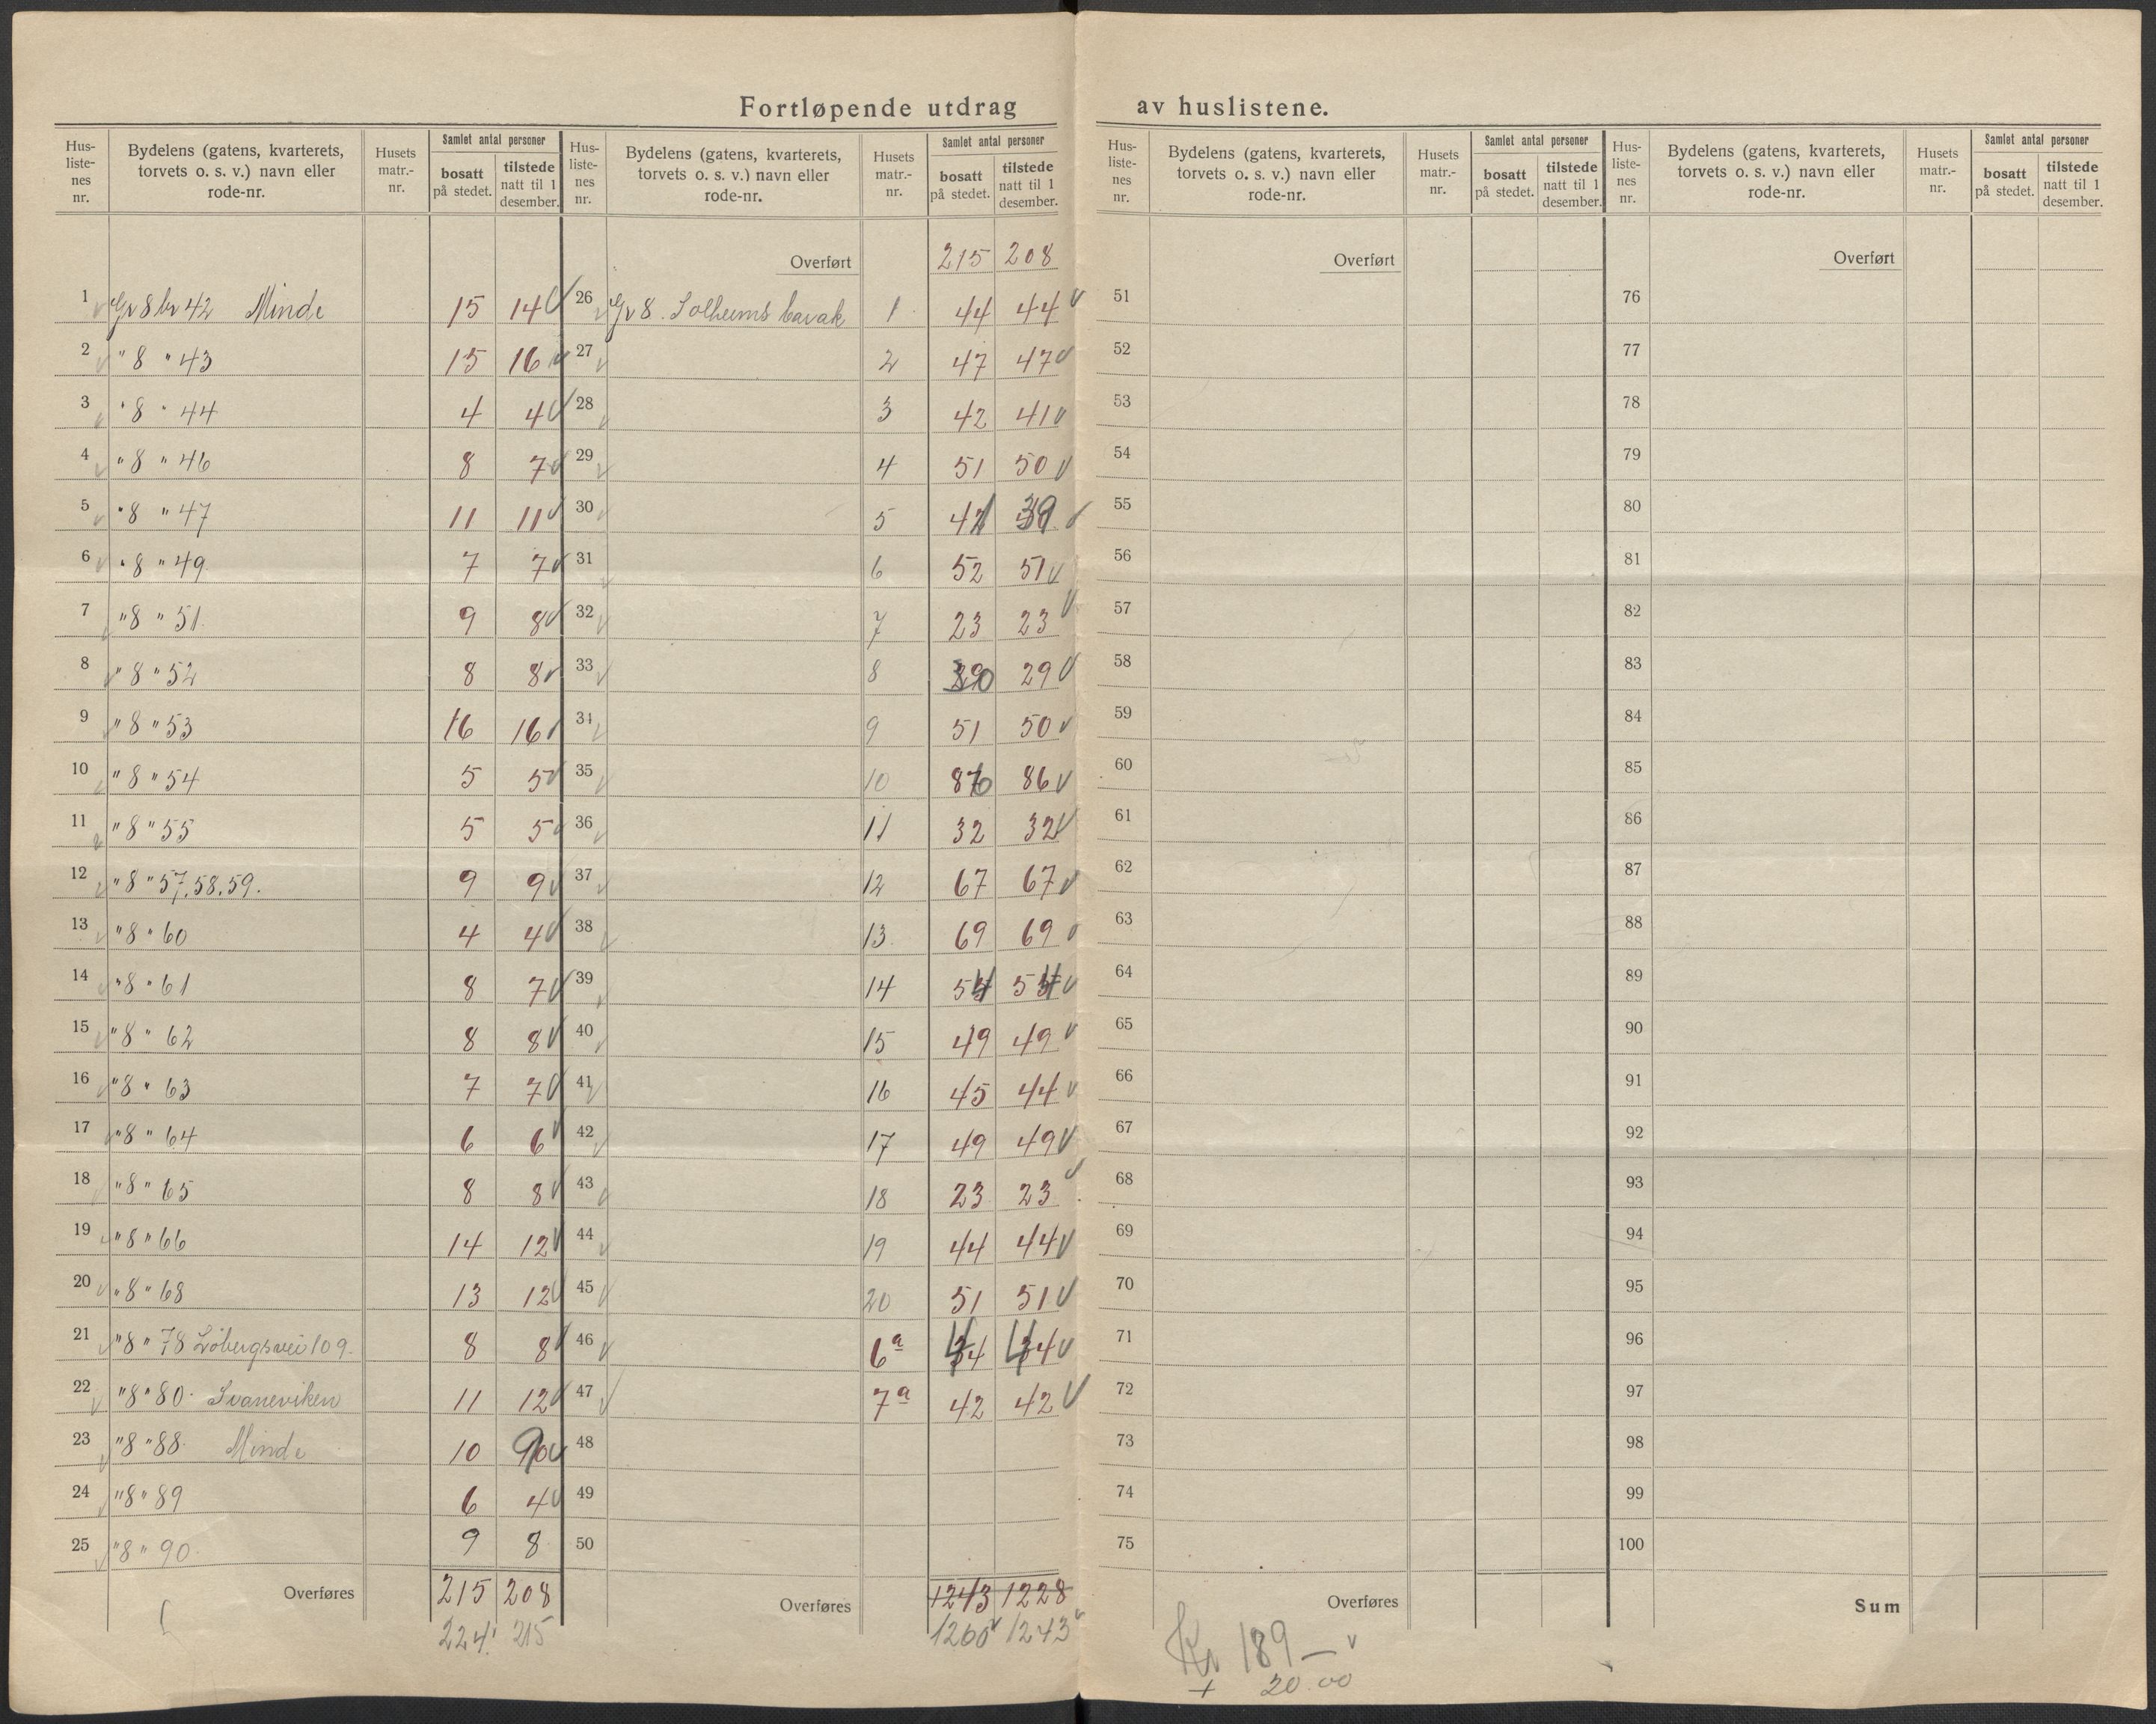 Fortløpende utdrag av huslistene.
Hus-listenes nr. | Bydelens (gatens, kvarterets, torvets o. s. v.) navn eller rode-nr. | Husets matr.-nr. | Samlet antal personer bosatt på stedet. | tilstede natt til 1 desember.
1 Gr 8 br 42 Minde 15 14
2 " 8 " 43 15 16
3 " 8 " 44 4 4
4 " 8 " 46 8 7
5 " 8 " 47 11 11
6 " 8 " 49 7 7
7 " 8 " 51 9 8
8 " 8 " 52 8 8
9 " 8 " 53 16 16
10 " 8 " 54 5 5
11 " 8 " 55 5 5
12 " 8 " 57,58,59. 9 9
13 " 8 " 60 4 4
14 " 8 " 61 8 7
15 " 8 " 62 8 8
16 " 8 " 63 7 7
17 " 8 " 64 6 6
18 " 8 " 65 8 8
19 " 8 " 66 14 12
20 " 8 " 68 13 12
21 " 8 " 78 Löbergsvei 109. 8 8
22 " 8 " 80 Svaneviken 11 12
23 " 8 " 88 Minde 10 9
24 " 8 " 89 6 4
25 " 8 " 90 9 8
Overføres 215 208
224 215
Hus-listenes nr. | Bydelens (gatens, kvarterets, torvets o. s. v.) navn eller rode-nr. | Husets matr.-nr. | Samlet antal personer bosatt på stedet. | tilstede natt til 1 desember.
Overført 215 208
26 Gr 8. Solheims barak 1 44 44
27 2 47 47
28 3 42 41
29 4 51 50
30 5 41 39
31 6 52 51
32 7 23 23
33 8 30 29
34 9 51 50
35 10 86 86
36 11 32 32
37 12 67 67
38 13 69 69
39 14 54 54
40 15 49 49
41 16 45 44
42 17 49 49
43 18 23 23
44 19 44 44
45 20 51 51
46 6a 44 44
47 7a 42 42
48
49
50
Overføres 1243 1228
1260 1243
Hus-listenes nr. | Bydelens (gatens, kvarterets, torvets o. s. v.) navn eller rode-nr. | Husets matr.-nr. | Samlet antal personer bosatt på stedet. | tilstede natt til 1 desember.
Overført
51
52
53
54
55
56
57
58
59
60
61
62
63
64
65
66
67
68
69
70
71
72
73
74
75
Overføres
Kr 189 —
+ 20.00
Hus-listenes nr. | Bydelens (gatens, kvarterets, torvets o. s. v.) navn eller rode-nr. | Husets matr.-nr. | Samlet antal personer bosatt på stedet. | tilstede natt til 1 desember.
Overført
76
77
78
79
80
81
82
83
84
85
86
87
88
89
90
91
92
93
94
95
96
97
98
99
100
Sum